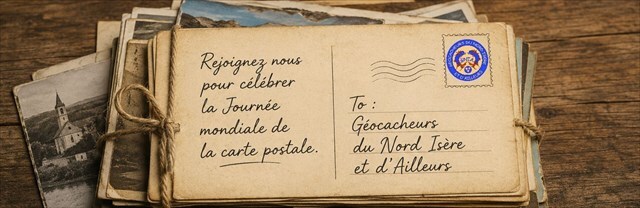 Rejoignez nous
pour célébrer
la Journée
mondiale de
la carte postale.
To :
Géocacheurs
du Nord Isère
et d'Ailleurs